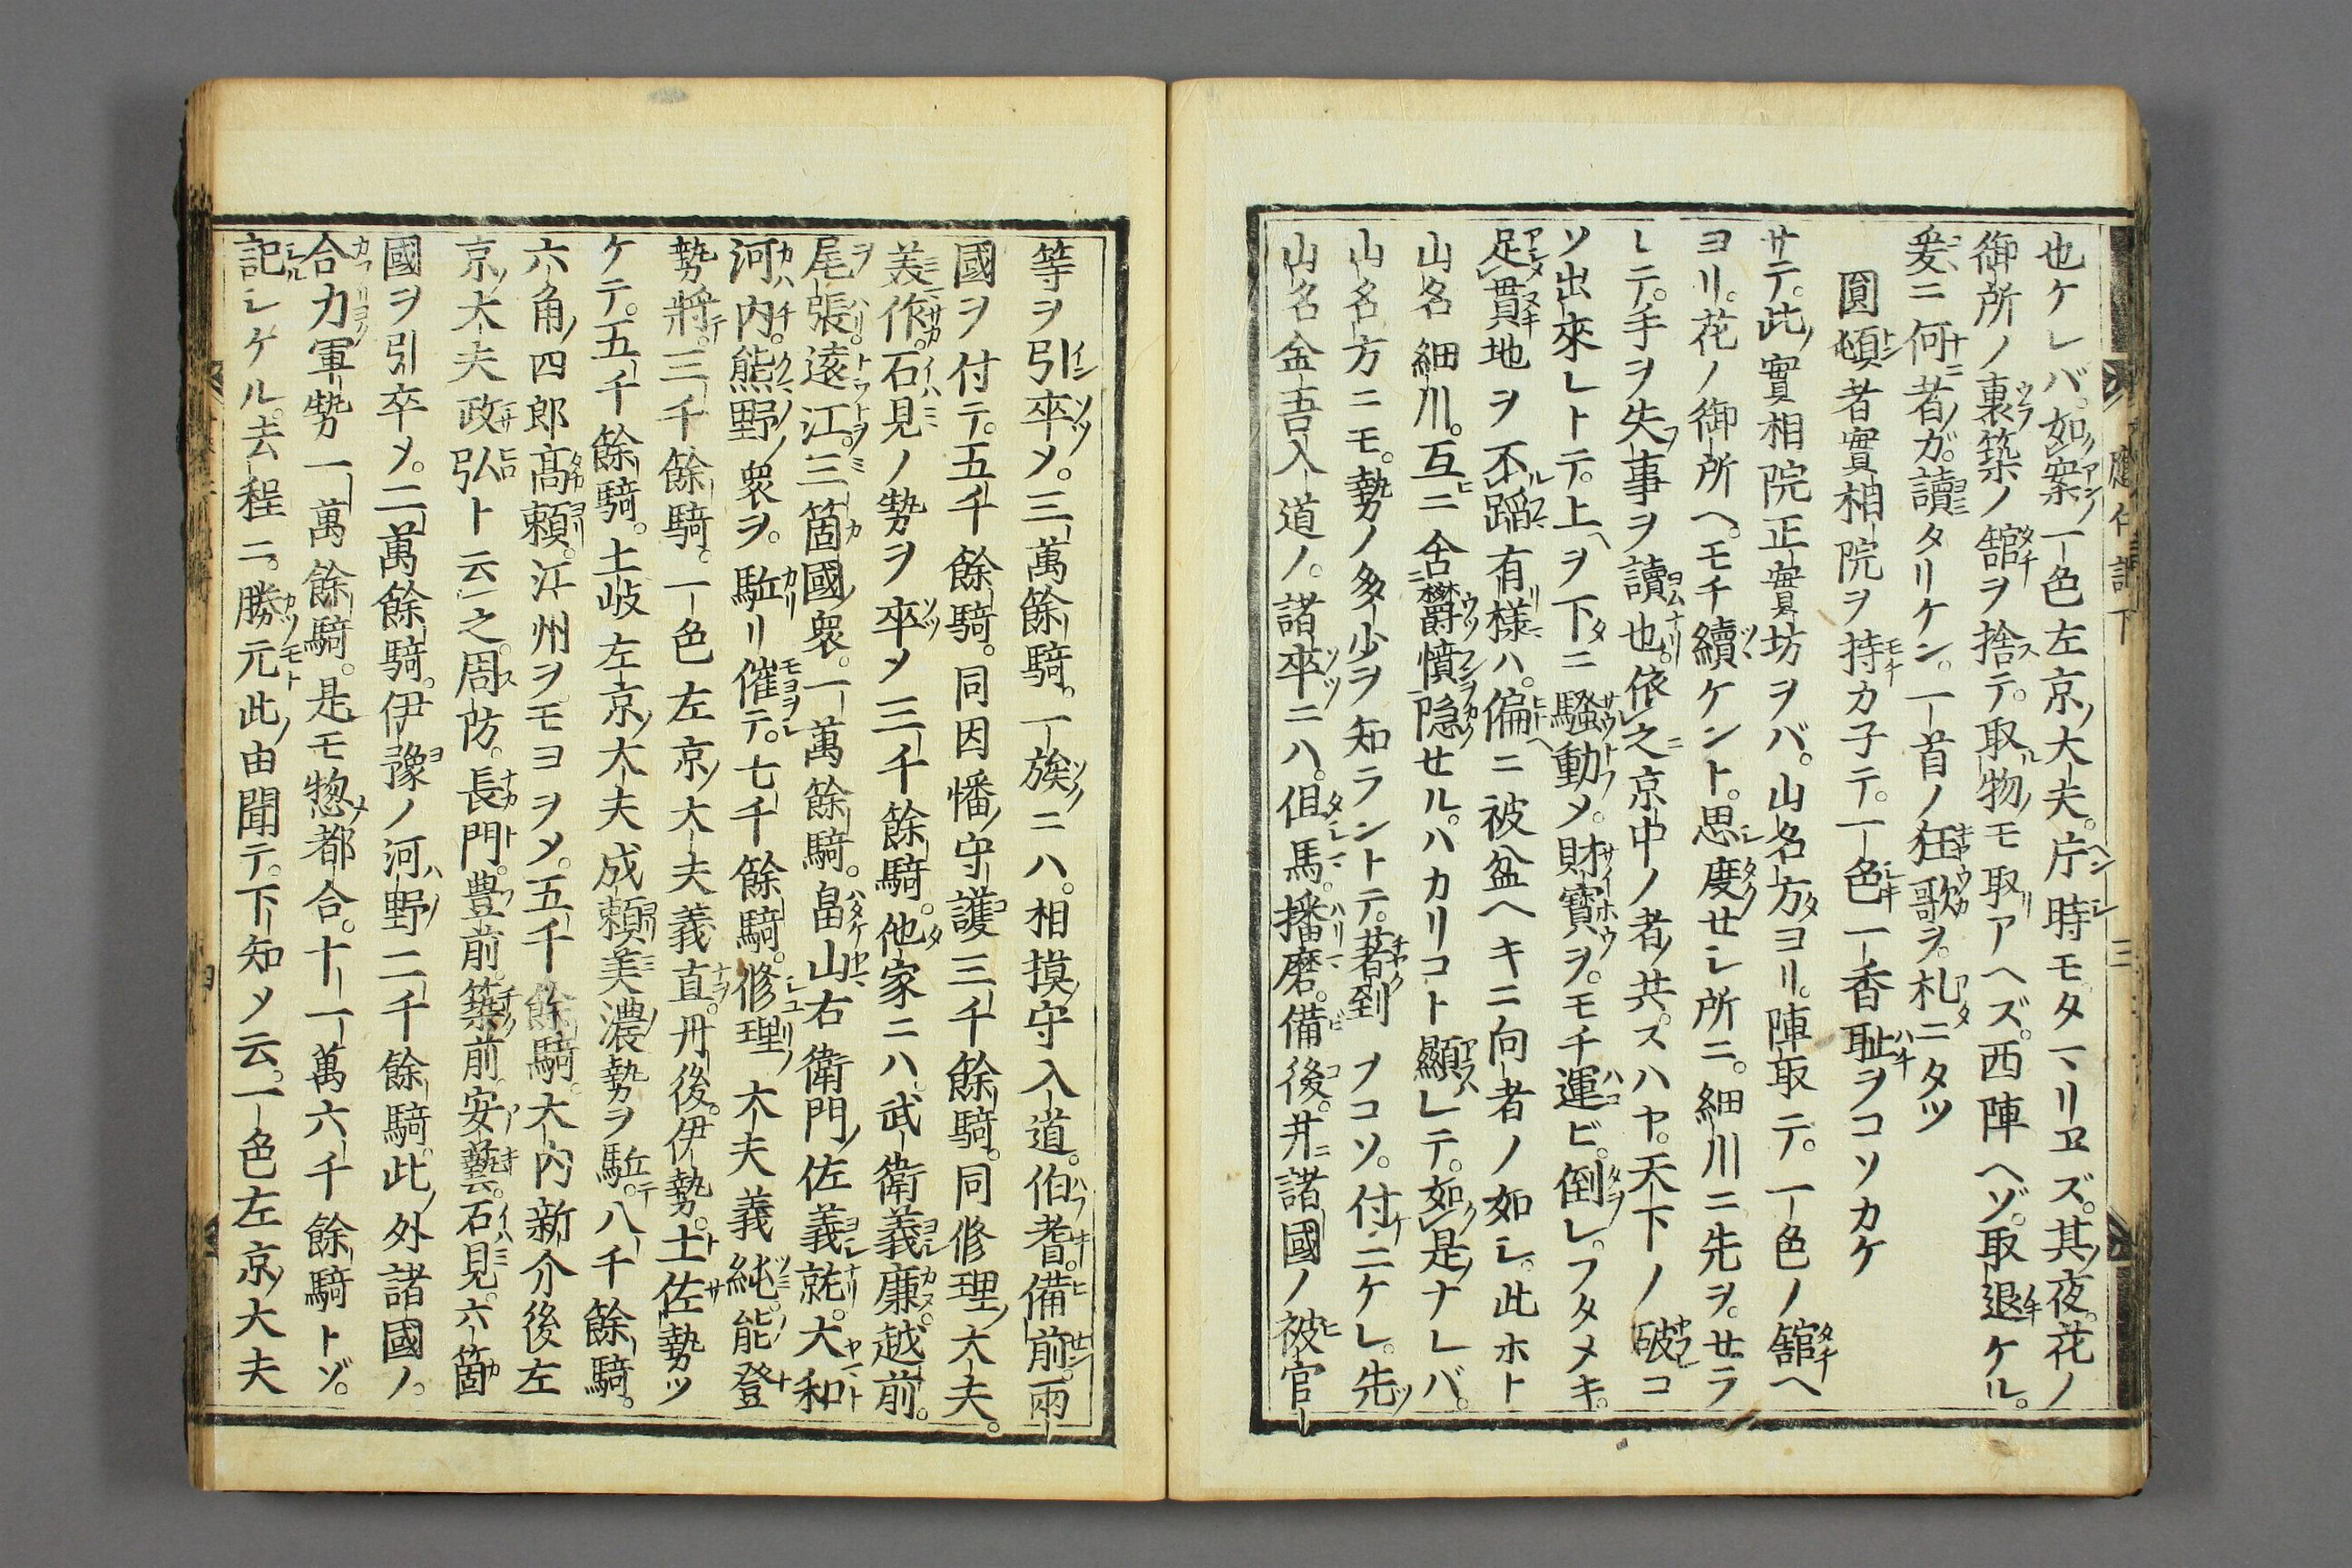 也ケレバ。如案一色左京大夫。片時モタマリヱズ。其夜。花ノ
御所ノ裏築ノ舘ヲ捨テ。取物モ取アヘズ。西陣ヘゾ。取退ケル。
爰ニ何者ガ。讀タリケン。一首ノ狂歌ヲ。札ニタツ
圓頓者實相院ヲ持カ子テ。一色一香耻ヲコソカケ
サテ。此實相院正實坊ヲバ。山名方ヨリ。陣取テ。一色ノ舘ヘ
ヨリ。花ノ御所ヘ。モチ續ケント。思度セシ所ニ。細川ニ先ヲ。セラ
レテ。手ヲ失事ヲ讀也。依之京中ノ者共。スハヤ。天下ノ破コ
ソ出來レトテ。上ヲ下ニ騷動メ。財寶ヲ。モチ運ビ。倒レ。フタメキ。
足貫地ヲ不蹈有樣ハ。偏ニ被盆ヘキニ向者ノ如シ。此ホト
山名細川。互ニ含欝憤隐セル。ハカリコト顯レテ。如是ナレバ。
山名方ニモ。勢ノ多少ヲ知ラントテ。著到フコソ。付ニケレ。先
山名金吾入道ノ。諸卒ニハ。但馬。播磨。備後。并諸國ノ被官
等ヲ引卒メ。三萬餘騎。一族ニハ。相摸守入道。伯耆。備前。兩
國ヲ付テ。五千餘騎。同因幡守護三千餘騎。同修理大夫。
美作。石見ノ勢ヲ卒メ三千餘騎。他家ニハ。武衛義廉。越前。
尾張。遠江。三箇國衆。一萬餘騎。畠山右衛門佐義就。大和
河内。熊野ノ衆ヲ。駈リ催テ。七千餘騎。修理大夫義純。能登
勢將。三千餘騎。一色左京大夫義直。丹後。伊勢。土佐勢ツ
ケテ。五千餘騎。土岐左京大夫成頼美濃勢ヲ駈。八千餘騎。
六角四郎髙頼。江州ヲモヨヲメ。五千餘騎。大内新介後左
京大夫政弘ト云之。周防。長門。豊前。築前。安藝。石見。六箇
國ヲ引卒メ。二萬餘騎。伊豫ノ河野二千餘騎。此外諸國ノ。
合力軍勢一萬餘騎。是モ惣都合。十一萬六千餘騎トゾ。
記シケル。去程ニ。勝元此由聞テ。下知メ云。一色左京大夫